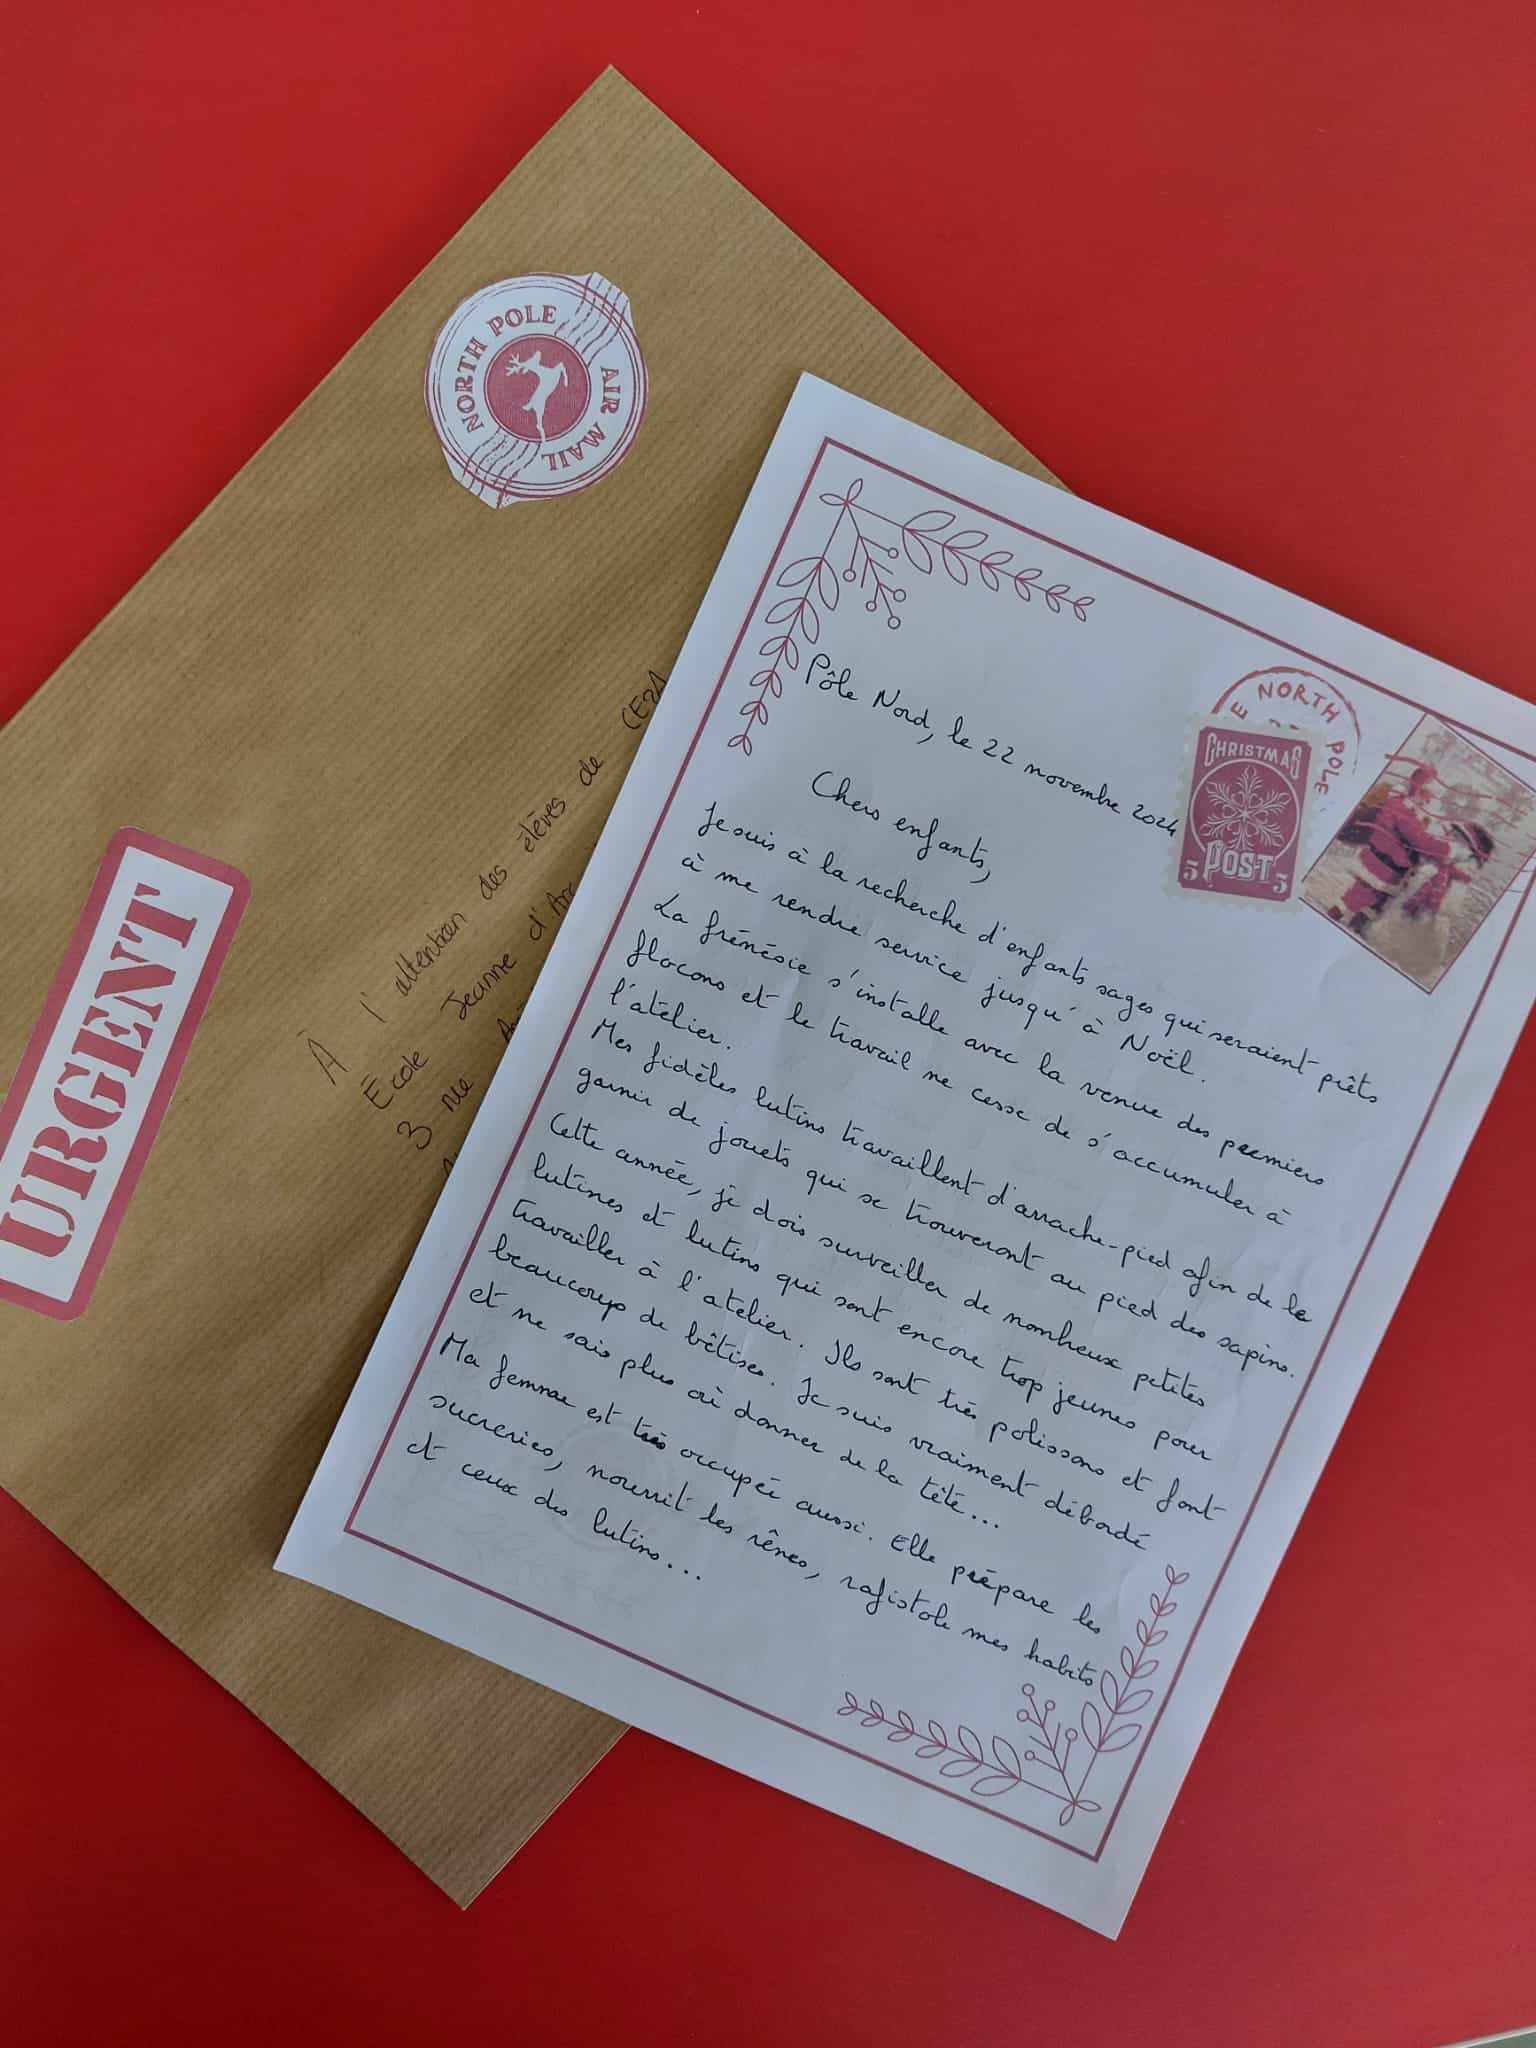 NORTH POLE
AIR MAIL
URGENT
À l'attention des élèves de CE2A
École Jeanne d'Arc
3 rue
Pôle Nord, le 22 novembre 2024
NORTH POLE
CHRISTMAS
POST
5 5
Chers enfants,
Je suis à la recherche d'enfants sages qui seraient prêts
à me rendre service jusqu'à Noël.
La frénésie s'installe avec la venue des premiers
flocons et le travail ne cesse de s'accumuler à
l'atelier.
Mes fidèles lutins travaillent d'arrache-pied afin de le
garnir de jouets qui se trouveront au pied des sapins.
Cette année, je dois surveiller de nombreux petites
lutines et lutins qui sont encore trop jeunes pour
travailler à l'atelier. Ils sont très polissons et font
beaucoup de bêtises. Je suis vraiment débordé
et ne sais plus où donner de la tête...
Ma femme est très occupée aussi. Elle prépare les
sucreries, nourrit les rênes, rafistole mes habits
et ceux des lutins...